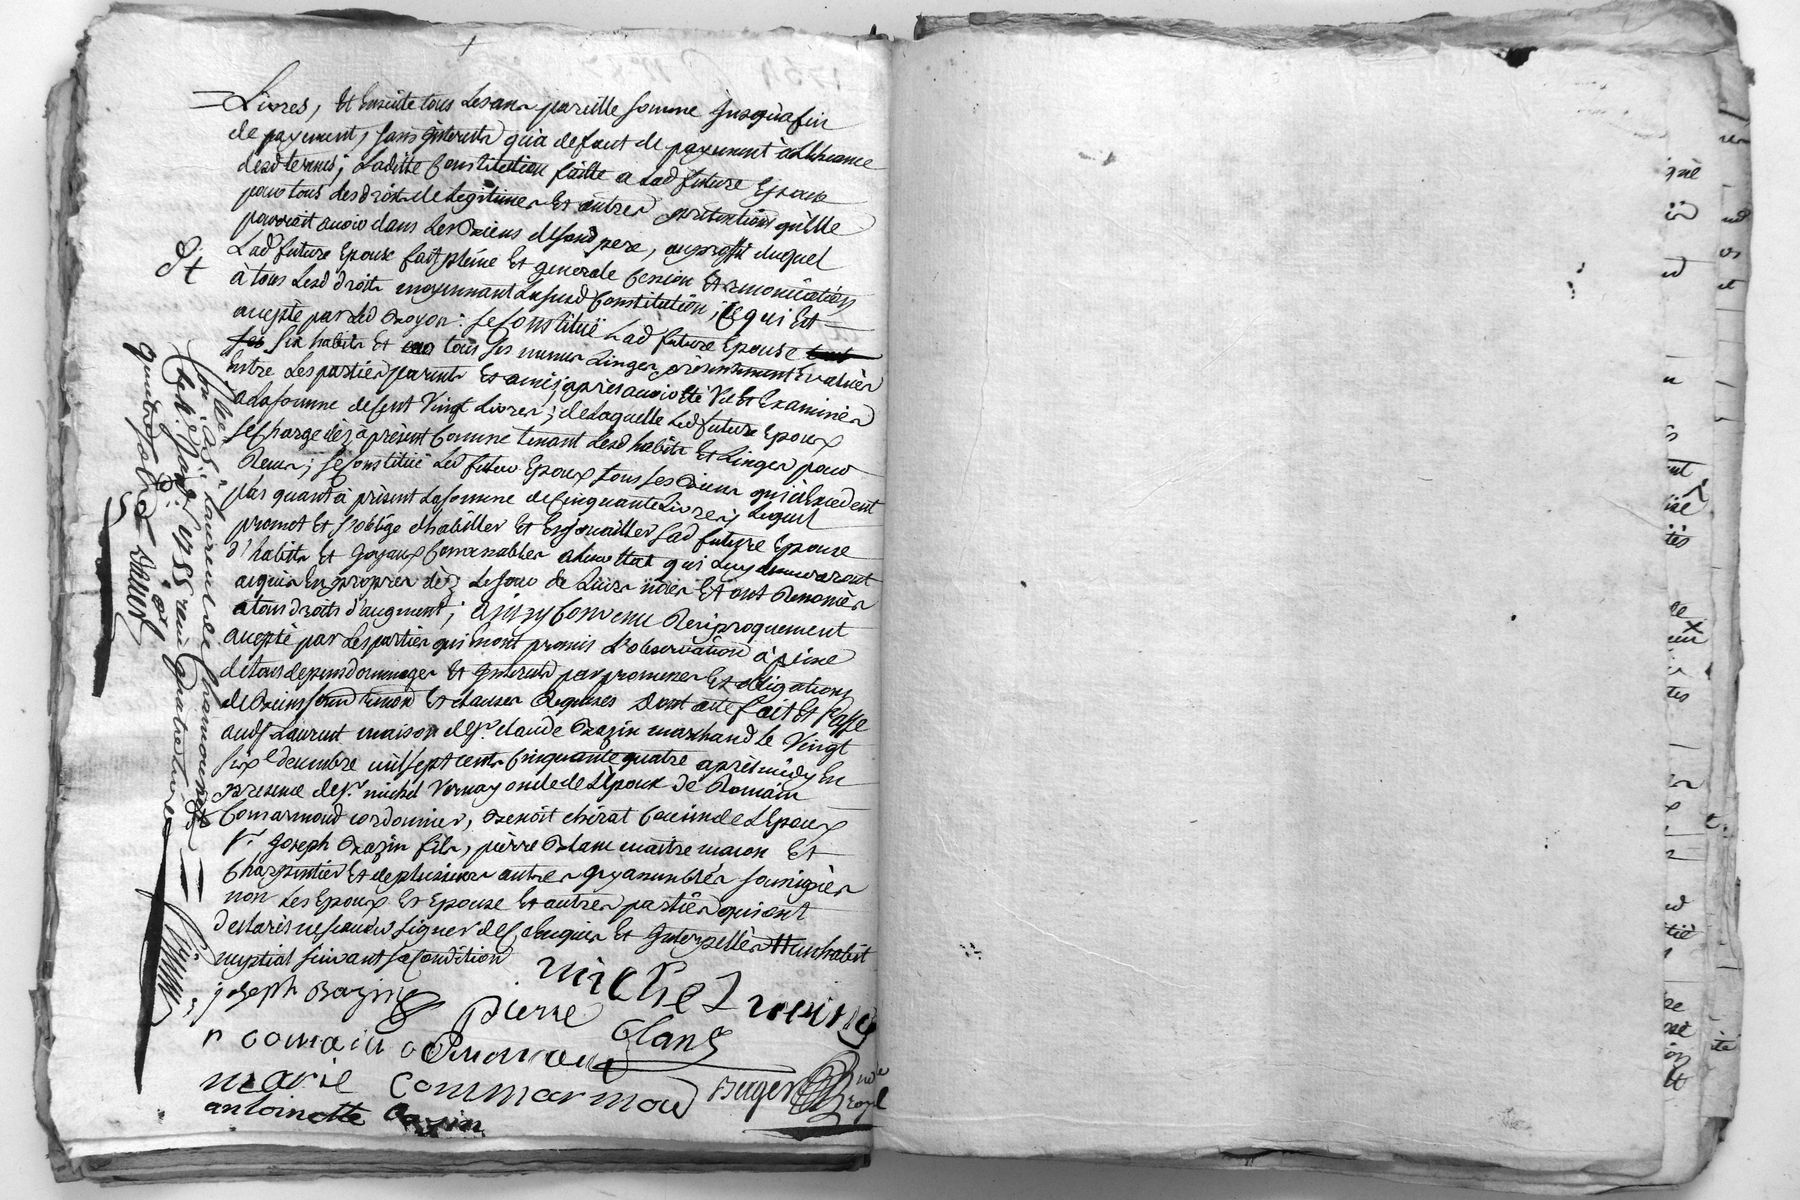 Livres, Et Ensuite tous Les ans pareille somme Jusqu'a fin
de payement, sans Interests qu'a defaut de payement a L'Echeance
desd termes; Laditte Constitution faitte a Lad future Epouse
pour tous Les droits de Legitimes Et autres pretentions qu'Elle
pouvoit avoir dans Les Biens de sond pere, au proffit duquel
Lad future Epouse fait pleine Et generale Cession Et renonciation
a tous Lesd droits moyennant La susd Constitution; Ce qui Est
accepté par Led : se Constituë Lad future Epouse
six habits Et tous ses menus Linges presentement Evalués
entre Les parties parents Et amis; après avoir Eté Vu Et Examinés
a La somme de Cent Vingt Livres; de Laquelle Led futur Epoux
se Charge dès à présent Comme tenant Lesd habits Et Linges pour
Reçus; se Constituë Led futur Epoux tous ses Biens qui n'Excedent
pas quant à présent La somme de Cinquante Livres; Lequel
promet Et s'oblige d'habiller Et Enjouailler Lad future Epouse
d'habits Et Joyaux Convenables a Leur Etat qui Luy demeureront
acquis En propres dès Le jour de Leurs nôces Et ont Renoncés
a tous droits d'augment; ainsy Convenu Reciproquement
accepté par Les parties qui En ont promis L'observation à peine
de tous depens dommages Et Interests par promesses Et obligations
de Biens Et clauses Requises Dont acte fait Et Passé
aud St Laurent maison de Sr. claude Bazin marchand Le Vingt
six Xe decembre mil sept cents Cinquante quatre après midy En
presence de Sr. michel Vernay oncle de L'Epoux de Romain
Comarmond cordonnier, Benoit chirat Cousin de L'Epoux
Sr. Joseph Bazin fils, pierre Blanc maitre maçon Et
Charpentier Et de plusieurs autres Icy assemblés soussignés
non Les Epoux Et Epouse Et autres parties qui ont
declarés ne sçavoir signer de Ce Enquis Et Interpellés # un habit
nuptial suivant sa Condition
joseph Bazin
michel
pierre
blanc
romain Commarmond
marie Commarmond
Berger
antoinette Bazin
Conllé a St. Laurent de Chamousset
Le 4e. Janv. 1755 reçu quatre livres
quatre sols